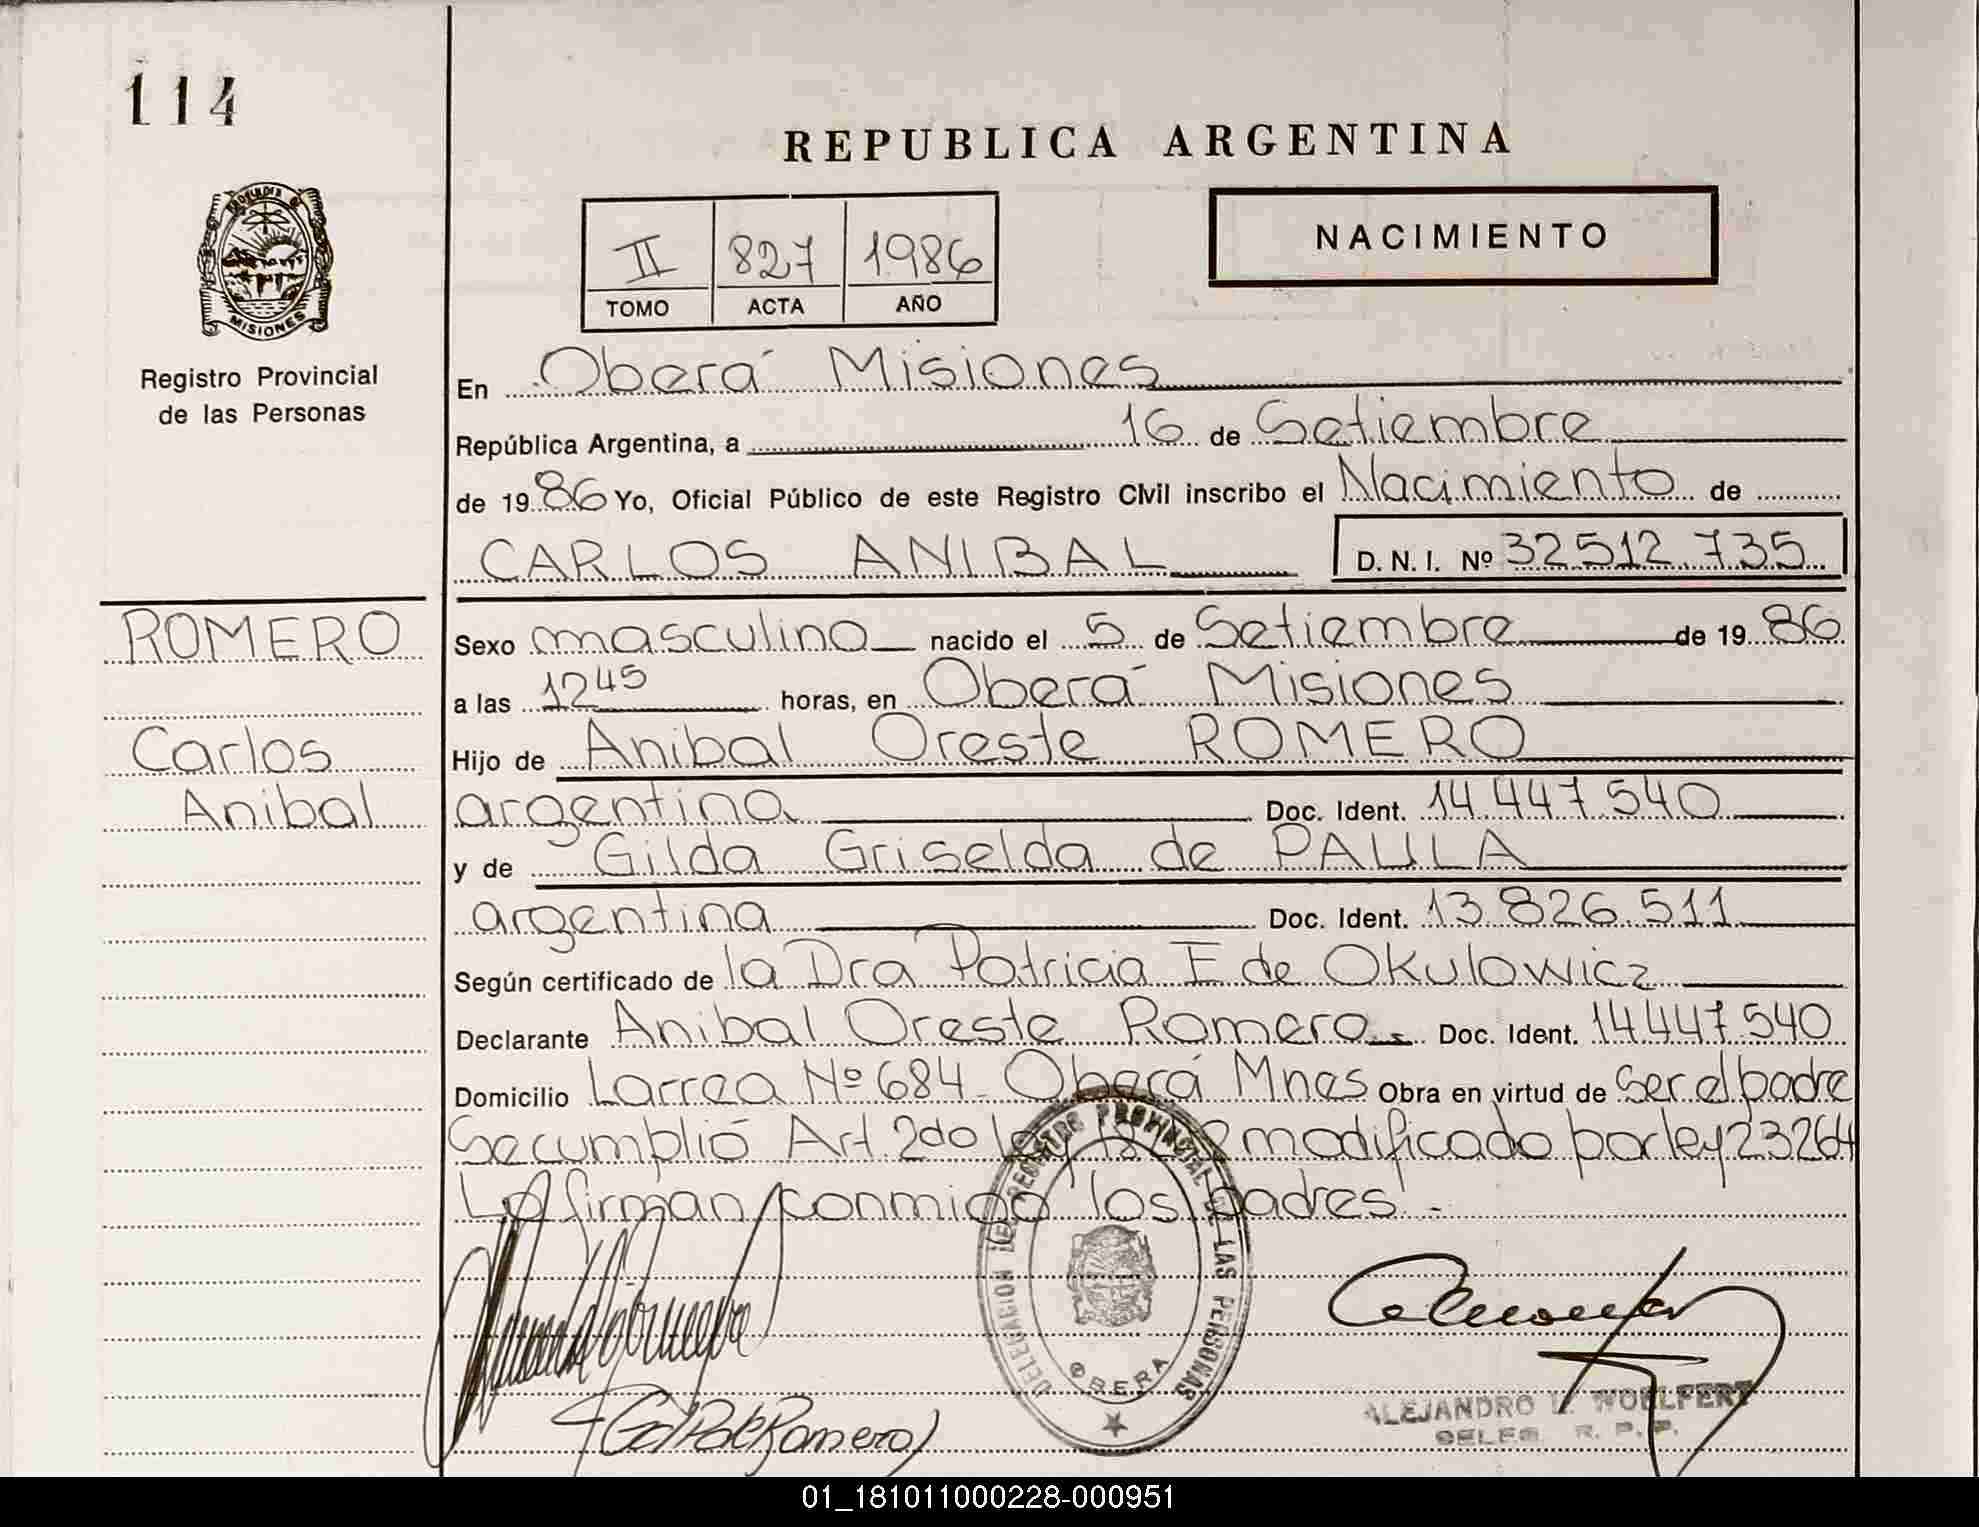 114
REPUBLICA ARGENTINA
II 827 1986
TOMO ACTA AÑO
NACIMIENTO
MISIONES
Registro Provincial
de las Personas
En Oberá Misiones
República Argentina, a 16 de Setiembre
de 1986 Yo, Oficial Público de este Registro Civil inscribo el Nacimiento de
CARLOS ANIBAL D.N.I. Nº 32512.735
ROMERO
Carlos
Anibal
Sexo masculino nacido el 5 de Setiembre de 1986
a las 12 45 horas, en Oberá Misiones
Hijo de Anibal Oreste ROMERO
argentina Doc. Ident. 14.447.540
y de Gilda Griselda de PAULA
argentina Doc. Ident. 13.826.511
Según certificado de la Dra Patricia F de Okulowicz
Declarante Anibal Oreste Romero Doc. Ident. 14.447.540
Domicilio Larrea Nº 684 Oberá Mnes Obra en virtud de Ser el padre
Se cumplió Art. 2do modificado por ley 23264
firman conmigo los padres.-
DELEGACION DEL REGISTRO PROVINCIAL DE LAS PERSONAS
OBERA
Romero
ALEJANDRO WOELFERT
DELEG. R. P. P.
01_181011000228-000951